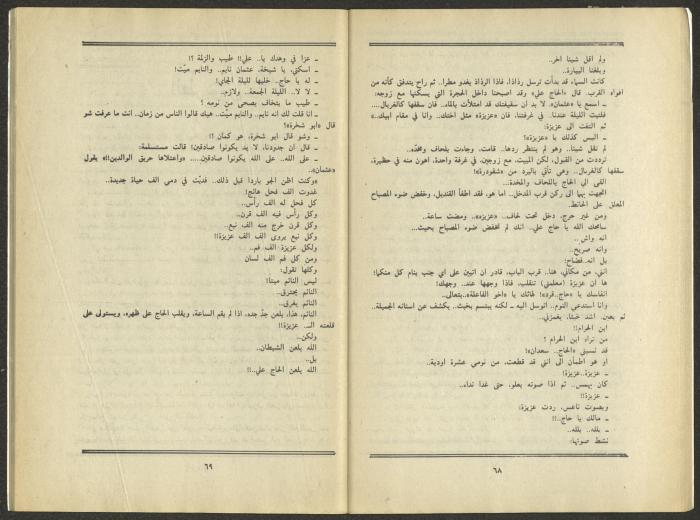 ولم اقل شيئا اخر..
وبلغنا البيارة..
كانت السماء قد بدأت ترسل رذاذا، فاذا الرذاذ يغدو مطرا.. ثم راح يتدفق كأنه من
افواه القرب. قال «الحاج علي» وقد اصبحنا داخل الحجرة التي يسكنها مع زوجه:
ـ اسمع يا «عثمان».. لا بد ان سقيفتك قد امتلأت بالماء.. فان سقفها كالغربال....
فلتبت الليلة عندنا.. في غرفتنا، فان «عزيزة» مثل اختك.. وانا في مقام ابيك..»
ثم التفت الى عزيزة:
ـ اليس كذلك يا «عزيزة»؟
لم تقل شيئا.. وهو لم ينتظر ردها.. قامت، وجاءت بلحاف ومخدّه..
ترددت من القبول، لكن المبيت، مع زوجين، في غرفة واحدة، اهون منه في حظيرة،
سقفها كالغربال.. وهي تأتي بالبرد من «شقودرة»!
القى الي الحاج باللحاف والمخدة...
اتجهت بهما الى ركن قرب المدخل.. اما هو، فقد اطفأ القنديل، وخفض ضوء المصباح
المعلق على الحائط.
ومن غير حرج، دخل تحت لحاف.. «عزيزه».. ومضت ساعة..
سامحك الله يا حاج علي.. انك لم تخفض ضوء المصباح بحيث...
انه واش..
وانه صريح..
بل انه..فضاح:
انني، من مكاني هنا.. قرب الباب، قادر ان اتبين على اي جنب ينام كل منكما؛
ها ان عزيزة (معلمتي) تتقلب، فاذا وجهها عند.. وجهك!
انفاسك يا «حاج..قرد»! فاتك يا «اخو الفاعلة»..بتعالى..
وانا استدعي النوم.. اتوسل اليه ـ لكنه يبتسم بخبث.. يكشف عن اسنانه الجميلة..
ثم بعين اشد خبثا، يغمزني..
ابن الحرام!!
من تراه ابن الحرام ؟
قد نسيني «الحاج.. سعدان»!
او هو اطمأن الى انني قد قطعت، من نومي عشرة اودية..
ـ عزيزة..عزيزة!
كان يهمس.. ثم اذا صوته يعلو، حتى غدا نداء..
ـ عزيزة!!
وبصوت ناعس، ردت عزيزة:
ـ مالك يا حاج..!!
ـ يلله.. يلله..
نشط صوتها:
٦٨
ـ عزا في وجدك يا.. علي!! طيب والزلة ؟!
ـ اسكتي، يا شيخة، عثمان نايم.. والنايم ميّت!
ـ له يا حاج.. خليها لليلة الجاي!
ـ لا لا.. الليلة الجمعة.. ولازم..
ـ طيب ما بتخاف يصحى من نومه ؟
ـ انا قلت لك انه نايم.. والنايم ميّت.. هيك قالوا الناس من زمان.. انت ما عرفت شو
قال «ابو شخرة»؟
ـ وشو قال ابو شخرة، هو كمان ؟!
ـ قال ان جدودنا، لا بد يكونوا صادقين! قالت مستسلمة:
ـ على الله.. على الله يكونوا صادقين..... «واعتلاها حريق الوالدين!!» يقول
«عثمان».
«وكنت اظن الجو باردا قبل ذلك.. فدبّت في دمي الف حياة جديدة..
غدوت الف فحل هائج!
كل فحل له الف رأس..
وكل رأس فيه الف قرن..
وكل قرن خرج منه الف نبع..
وكل نبع يروى الف الف عزيزة!!
ولكل عزيزة الف فم..
ومن كل فم الف لسان
وكلها تقول:
ليس النائم ميتا!
النائم يحترق..
النائم يغرق..
النائم، هذا، يلعن جدّ جده، اذا لم يقم الساعة، ويقلب الحاج على ظهره، ويستولي على
قلعته الـ.. عزيزة!!
ولكن..
الله يلعن الشيطان..
بل..
الله يلعن الحاج علي..!!
٦٩